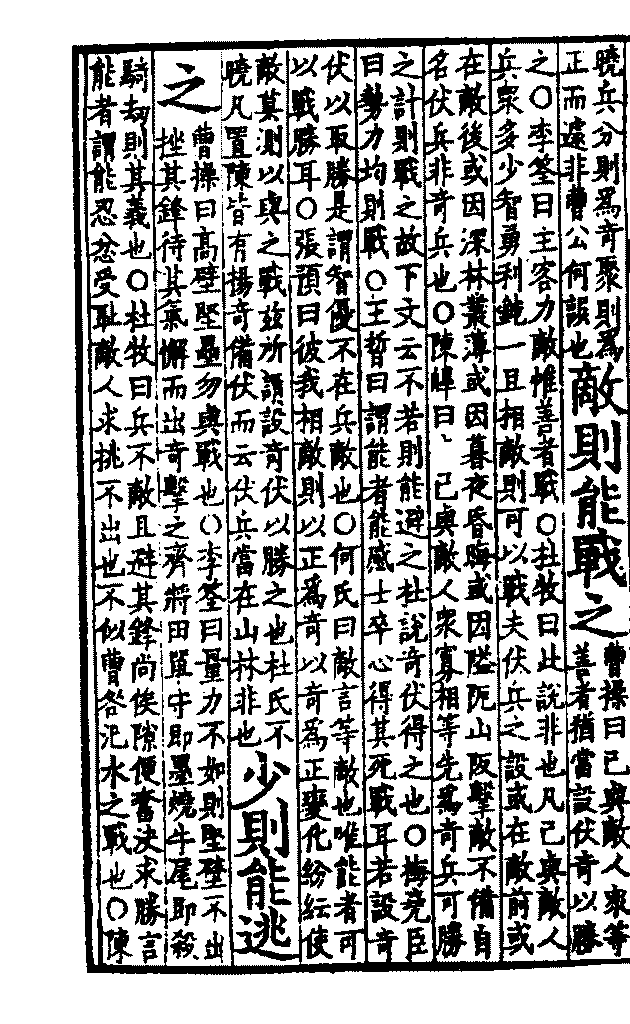 曉兵分則爲奇聚則爲
正而遽非曹公何誤也
敵則能戰之
曹操曰已與敵人衆等
善者猶當設伏奇以勝
之○李筌曰主客力敵惟善者戰○杜牧曰此說非也凡己與敵人
兵衆多少智勇利鈍一旦相敵則可以戰夫伏兵之設或在敵前或
在敵後或因深林叢薄或因暮夜昏晦或因隘阨山阪擊敵不備自
名伏兵非奇兵也○陳皥曰、已與敵人衆寡相等先爲奇兵可勝
之計則戰之故下文云不若則能避之杜說奇伏得之也○梅堯臣
曰勢力均則戰○王晳曰謂能者能感士卒心得其死戰耳若設奇
伏以取勝是謂智優不在兵敵也○何氏曰敵言等敵也唯能者可
以戰勝耳○張預曰彼我相敵則以正爲奇以奇爲正變化紛紜使
敵莫測以與之戰茲所謂設奇伏以勝之也杜氏不
曉凡置陳皆有揚奇備伏而云伏兵當在山林非也
少則能逃
之
曹操曰高壁堅壘勿與戰也○李筌曰量力不如則堅壁不出
挫其鋒待其氣懈而出奇擊之齊將田單守即墨燒牛尾即殺
騎劫則其義也○杜牧曰兵不敵且避其鋒尚俟隙便奮决求勝言
能者謂能忍忿受耻敵人求挑不出也不似曹咎汜水之戰也○陳